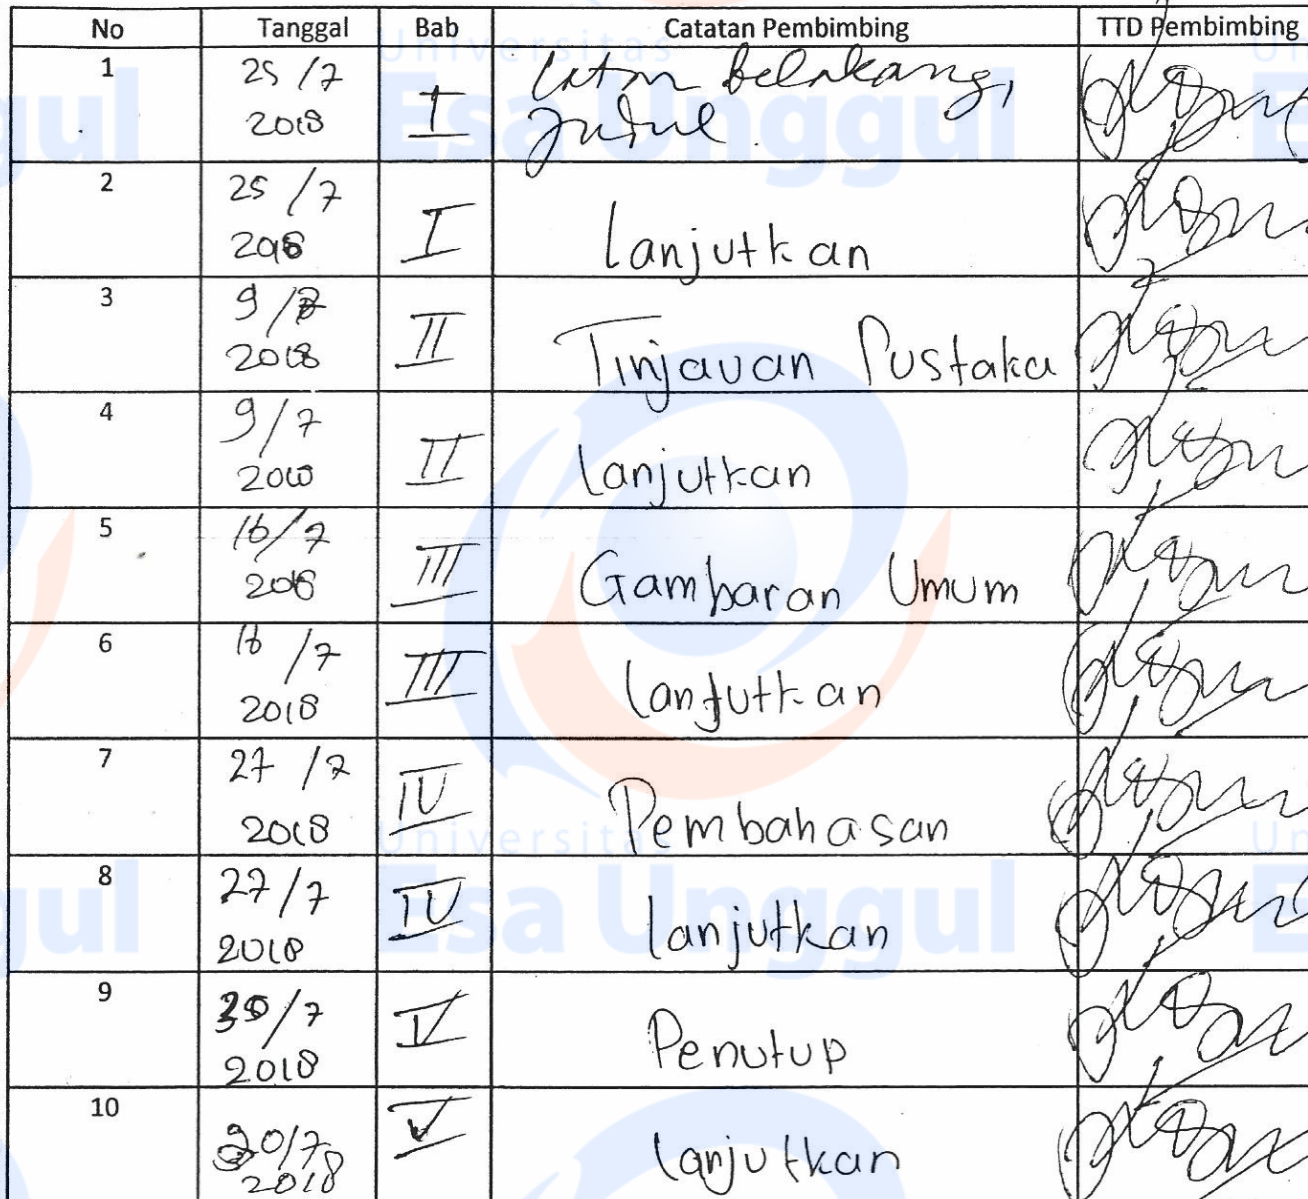 No Tanggal Bab Catatan Pembimbing TTD Pembimbing
1 25/7 2018 I Latar Belakang,
Judul.
2 25/7 2018 I Lanjutkan
3 9/7 2018 II Tinjauan Pustaka
4 9/7 2018 II Lanjutkan
5 16/7 2018 III Gambaran Umum
6 16/7 2018 III Lanjutkan
7 27/7 2018 IV Pembahasan
8 27/7 2018 IV Lanjutkan
9 30/7 2018 V Penutup
10 30/7 2018 V Lanjutkan
Universitas
Esa Unggul
Universitas
Esa Unggul